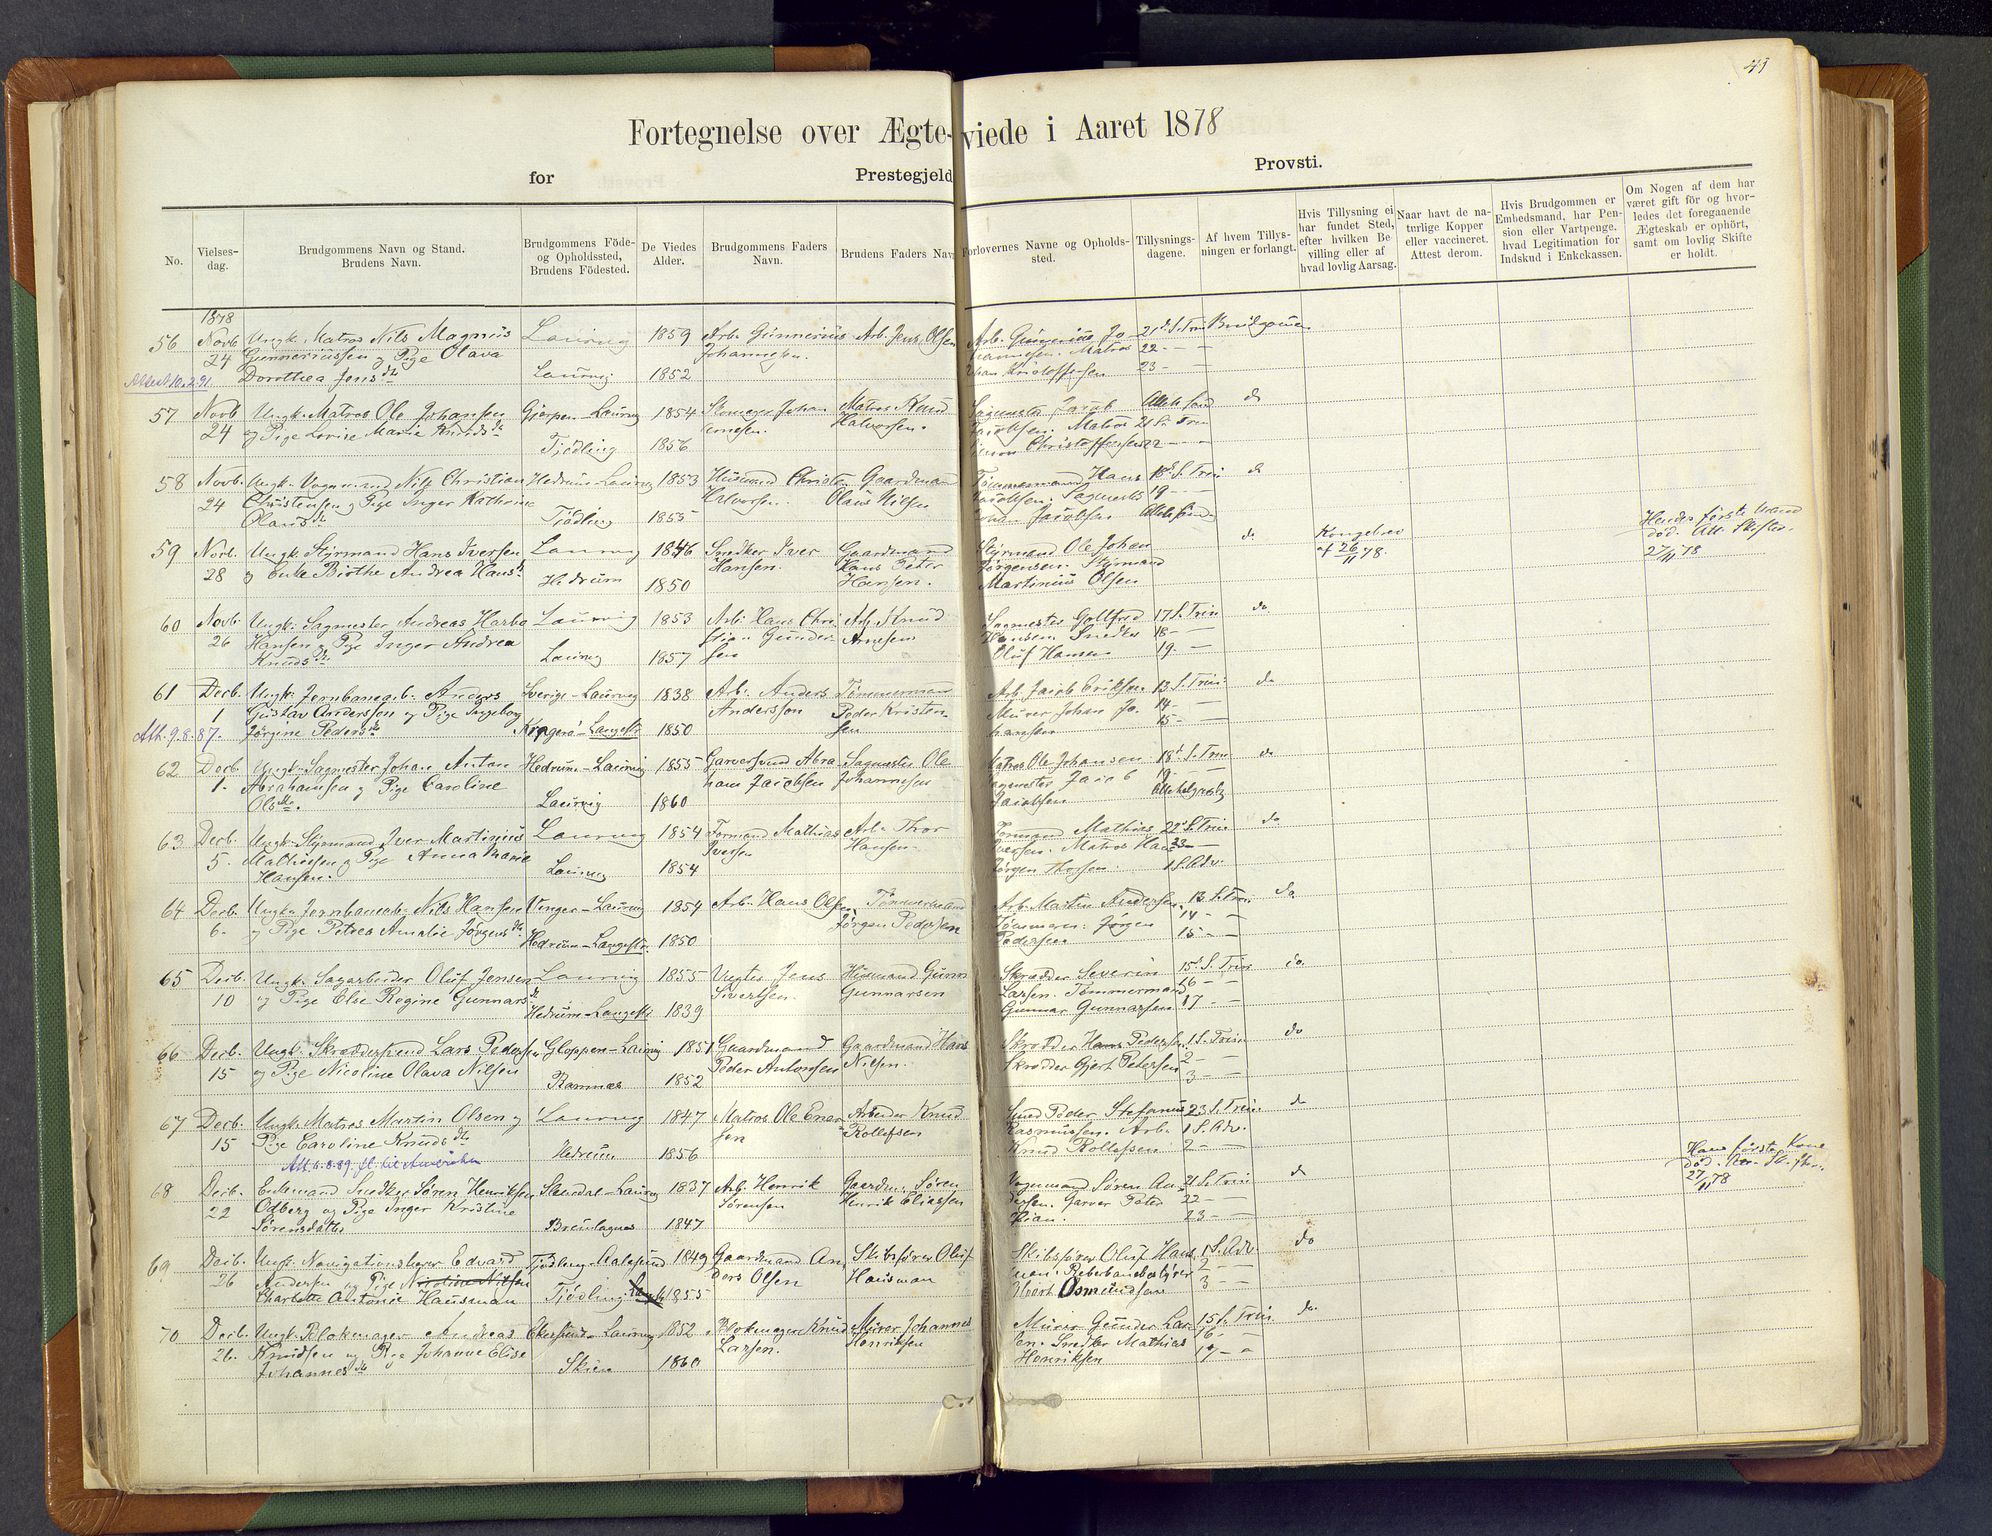 41
Fortegnelse over Ægteviede i Aaret 1878
for Prestegjeld Provsti.
No.
Vielses-
dag.
Brudgommens Navn og Stand.
Brudens Navn.
Brudgommens Föde-
og Opholdssted,
Brudens Födested.
De Viedes
Alder.
Brudgommens Faders
Navn.
Brudens Faders Navn
Forlovernes Navne og Opholds-
sted.
Tillysnings-
dagene.
Af hvem Tillys-
ningen er forlangt.
Hvis Tillysning ei
har fundet Sted,
efter hvilken Be-
villing eller af
hvad lovlig Aarsag.
Naar havt de na-
turlige Kopper
eller vaccineret.
Attest derom.
Hvis Brudgommen er
Embedsmand, har Pen-
sion eller Vartpenge.
hvad Legitimation for
Indskud i Enkekassen.
Om Nogen af dem har
været gift för og hvor-
ledes det foregaaende
Ægteskab er ophört,
samt om lovlig Skifte
er holdt.
1878
56 Novb Ungk. Matros Nils Magnus Laurvig 1859 Arb. Gunnerius Arb. Jens Olsen Arb. Gunnerius Jo 21d. S. Trin Brudgommen
24 Gunneriussen og Pige Olava Johannesen hannesen. Matros 22 — —
Attest 10.2.91. Dorothea Jensdtr Laurvig 1852 Johan Kristoffersen 23 — —
57 Novb Ungk. Matros Ole Johansen Gjerpen-Laurvig 1854 Johan Matros Knud Sagmester Jacob do
24 og Pige Lovise Marie Knudsdtr Arnesen. Halvorsen. Jacobsen. Matros 21 S. Trin
Tjödling 1856 Christoffersen 22 — —
58 Novb. Ungk. Vognmand Nils Christian Hedrum-Laurvig 1853 Husmand Christen Gaardmand Tömmermand Hans 18d S. Trin do
24 Christensen og Pige Inger Kathrine Halvorsen Olaus Nilsen Jacobsen. Sagmester 19 — —
Olausdtr Tjödling 1855 Johan Jacobsen
59 Novb. Ungk. Styrmand Hans Iversen Laurvig 1846 Snedker Iver Gaardmand Styrmand Ole Johan do Kongebrev Hendes første Mand
28 og Enke Birthe Andrea Hansdtr Hansen. Hans Peter Jørgensen. Styrmand af 26/11 78. død. Att. Skifter.
Hedrum 1850 Hansen. Martinius Olsen 27/11 78
60 Novb. Ungk. Sagmester Andreas Laurvig 1853 Arb. Hans Chri- Arb. Knud Sagmester Gottfred 17 S. Trin do
26 Hansen og Pige Inger Andrea stian Gunder- Arnesen Hansen Snedker 18 —
Knudsdtr Laurvig 1857 sen Oluf Hansen 19. —
61 Decb. Ungk. Jernbanearb. Anders Sverige-Laurvig 1838 Arb. Anders Tömmermand Arb. Jacob Eriksen 13 S. Trin. do
1 Gustav Anderssen og Pige Ingeborg Andersson Peder Kristen- Murer Johan Jo- 14 —
Att. 9.8.87. Jørgine Pedersdtr Kragerö-Langestr. 1850 sen hansen 15 —
62 Decb. Ungk. Sagmester Johan Anton Hedrum-Laurvig 1855 Garversvend Abra- Sagmester Ole Matros Ole Johansen 18d S. Trin do
1. Abrahamsen og Pige Caroline ham Jacobsen Johannesen Sagmester Jacob 19 —
Olsdtr. Laurvig 1860 Jacobsen Allehelgensdg
63 Decb. Ungk. Styrmand Iver Martinius Laurvig 1854 Formand Mathias Arb. Thor Formand Mathias 22d S. Trin do
5. Mathisen og Pige Anna Marie Iversen Hansen Iversen. Matros Hans 23 —
Hansen. Laurvig 1854 Jørgen Thorsen 1 S. Adv.
64 Decb. Ungk. Jernbanearb. Nils Hansen Vinger-Laurvig 1854 Arb. Hans Olsen Tömmermand Arb. Martin Andersen. 13 S. Trin do
6. og Pige Petrea Amalie Jørgensdtr Jørgen Pedersen Tömmerm. Jørgen 14 — —
Hedrum-Langestr. 1850 Pedersen 15 — —
65 Decb. Ungk. Sagarbeider Oluf Jensen Laurvig 1855 Vægter Jens Husmand Gunnar Skrædder Severin 15d S. Trin do
10 og Pige Else Regine Gunnarsdtr Sivertsen. Gunnarsen Larsen. Tömmermand 16 — —
Hedrum-Langestr. 1839 Gunnar Gunnarsen 17 — —
66 Decb. Ungk. Skræddersvend Lars Pedersen Gloppen-Laurvig 1851 Gaardmand Gaardmand Hans Skrædder Hans Pedersen 1 S. Trin do
15 og Pige Nicoline Olava Nilsen Peder Antonsen Nilsen. Skrædder Gjert Petersen 2 —
Ramnæs 1852 3 —
67 Decb. Ungk. Matros Martin Olsen og Laurvig 1847 Matros Ole Ener- Arbeider Knud Smed Peder Stefanus 23 S. Trin. do
15 Pige Caroline Knudsdtr sen Rollefsen Rasmussen. Arb. 1 S. Adv.
Att. 6.8.89. fl. til Amerika Hedrum 1856 Knud Rollefsen 2 — —
68 Decb. Enkemand Snedker Søren Henriksen Slemdal-Laurvig 1837 Arb. Henrik Gaardm. Søren Vognmand Søren An- 21 S. Trin do Hans første Kone
22 Odberg og Pige Inger Kristine Sørensen Henrik Eliassen dersen. Garver Peter 22 — — død.
Sørensdatter Brunlagnes 1847 23 — — 27/11 78
69 Decb. Ungk. Navigationslærer Edvard Tjödling-Aalesund 1849 Gaardmand An- Skibsfører Oluf Skibsfører Oluf Haus- 1 S. Adv. do
26 Andersen og Pige Nicoline Nilsen ders Olsen Hausman man. Reberbanebestyrer 2 — —
Charlotte Antonie Hausman Tjödling 1855 Elvert Osmundsen 3 — —
70 Decb. Ungk. Blokmager Andreas Laurvig 1852 Blokmager Knud Murer Johannes Murer Gunder Lar- 15 S. Trin do
26. Knudsen og Pige Johanne Elise Larsen. Henriksen sen. Snedker Mathias 16 —
Johannesdtr Skien 1860 Henriksen 17 —